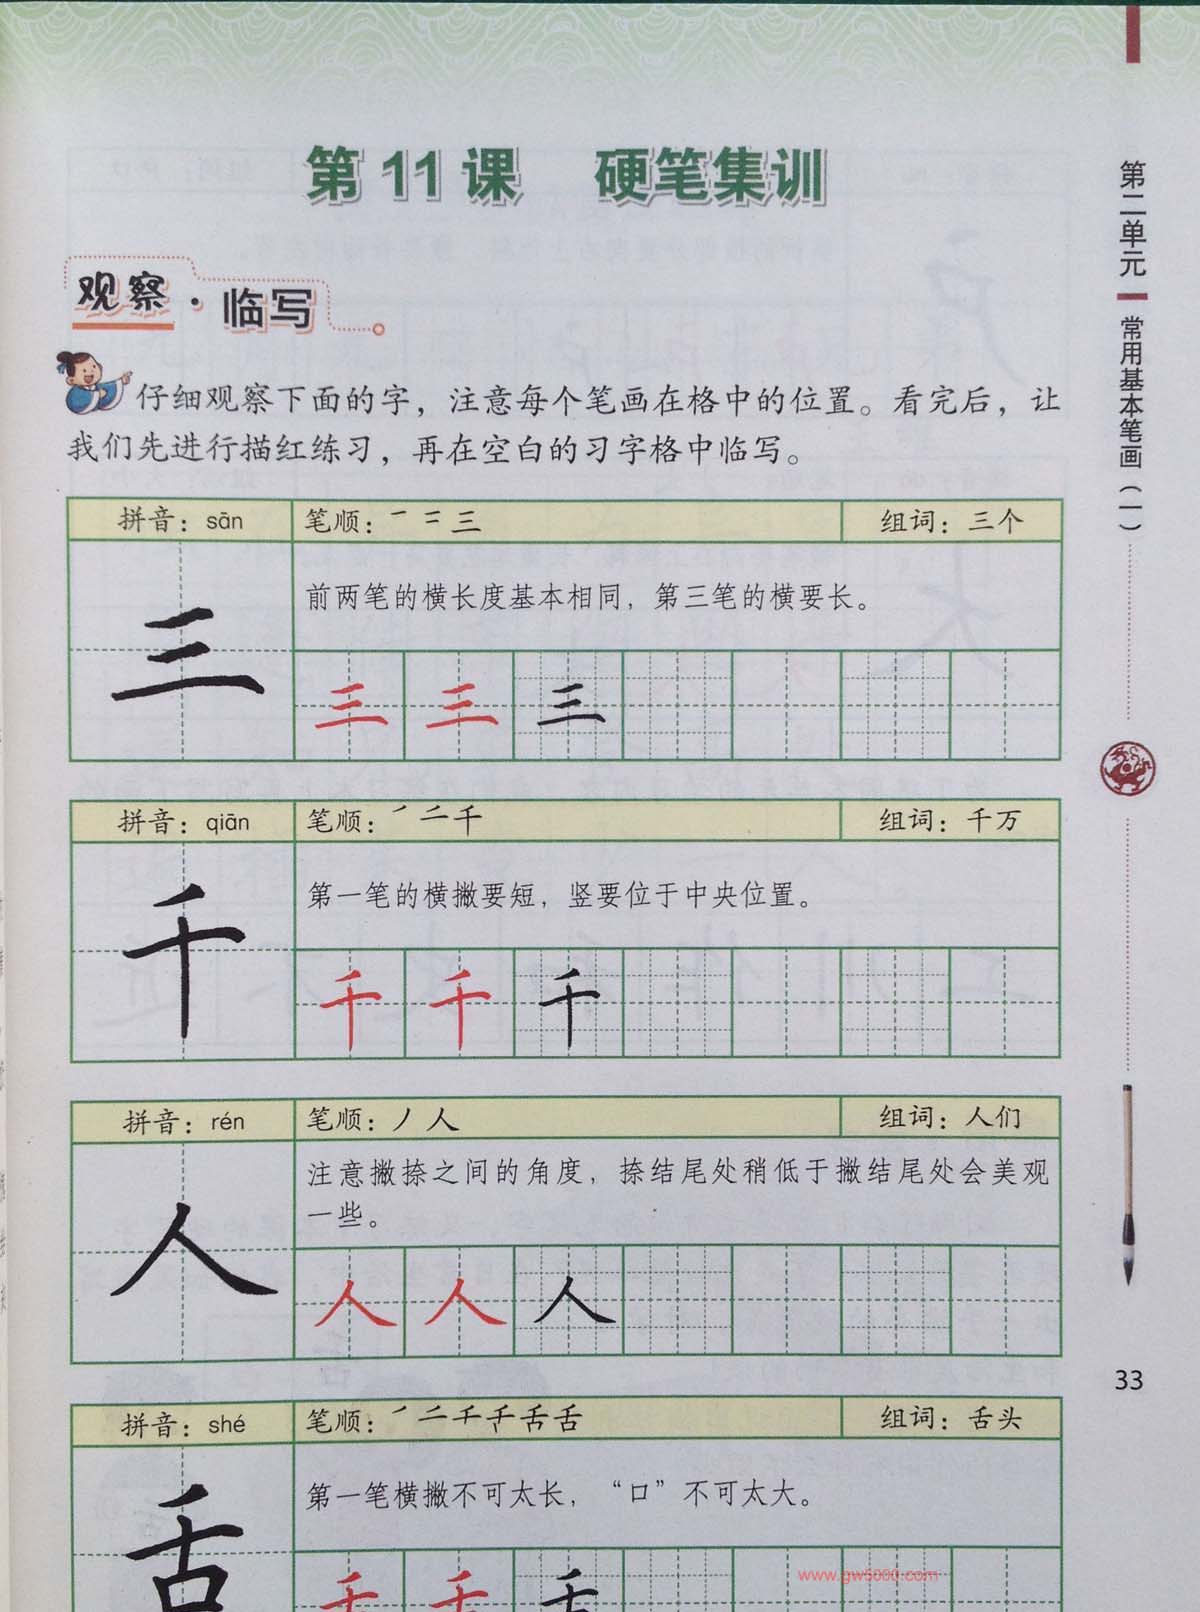 第11课 硬笔集训
观察·临写
仔细观察下面的字，注意每个笔画在格中的位置。看完后，让
我们先进行描红练习，再在空白的习字格中临写。
拼音：sān 笔顺：一 二 三 组词：三个
三
前两笔的横长度基本相同，第三笔的横要长。
三 三 三
拼音：qiān 笔顺：㇒ 二 千 组词：千万
千
第一笔的横撇要短，竖要位于中央位置。
千 千 千
拼音：rén 笔顺：丿 人 组词：人们
人
注意撇捺之间的角度，捺结尾处稍低于撇结尾处会美观
一些。
人 人 人
拼音：shé 笔顺：㇒ 二 千 千 舌 舌 组词：舌头
舌
第一笔横撇不可太长，“口”不可太大。
www.gw5000.com
第二单元
常用基本笔画（一）
33